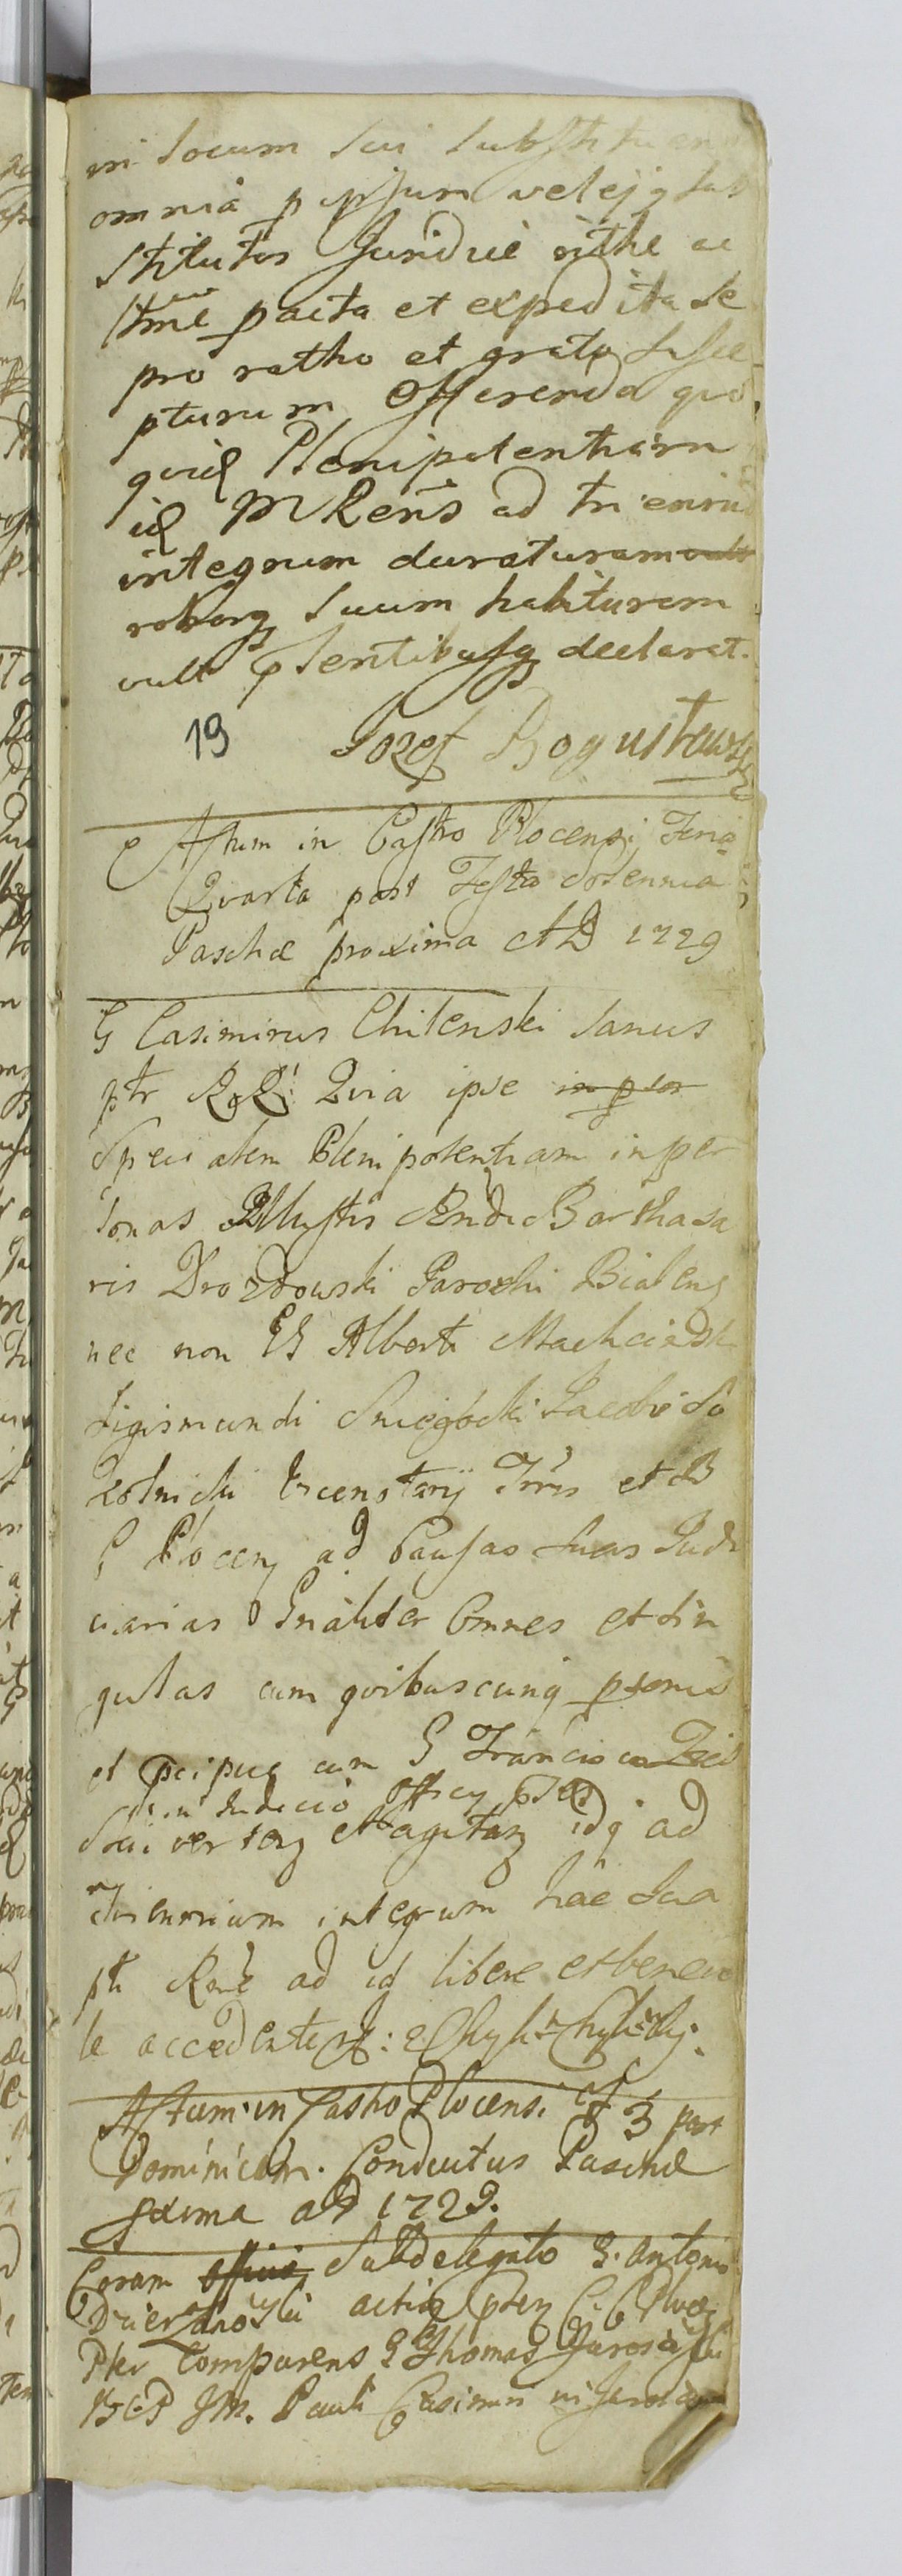 in locum sui substituen
omnia p ipsum vel ejq sub
stitutos Juridice rithe ac
ltme pacta et expedita se
pro ratho et grato susce
pturum Offerendo quo
quid Plenipotentiam
id M Rens ad trienniu
integrum duraturam vult
roborq suum habituram
vult psentibusq declarat.
19 Jozef Bogusławski
Actum in Castro Plocensi Feria
Quarta post Festa solennia
Paschæ proxima AD 1729
G Casimirus Chilenski sanus
ptr RR: Quia ipse in per
Specialem Plenipotentiam in per
sonas Illustris Rndi Barthasa
ris Drozdowski Parochi Bialens
nec non GG Alberti Machcinski
Sigismundi Sniegocki Jacobi So
zotnicki Vicenotarij Trris et B
C Plocen ad Causas suas Judi
ciarias Gnaliter Omnes et sin
gulas cum quibuscunq psonis
et pcipue cum G Francisco
in Judicio Officij
versen et agitan idq ad
triennium integrum hac sua
ptr Rone ad id libere et benevo
le accedente
Actum in Castro Plocensi f 3 post
Dominicam Conductus Paschæ
pxima AD 1729.
Coram officio Subdelegato G. Antonio
Dzierzanowski actisq pten C. C. Plocen
Pter Comparens G Thomas Jarosinski
BCP JM. Pauli Casimiri